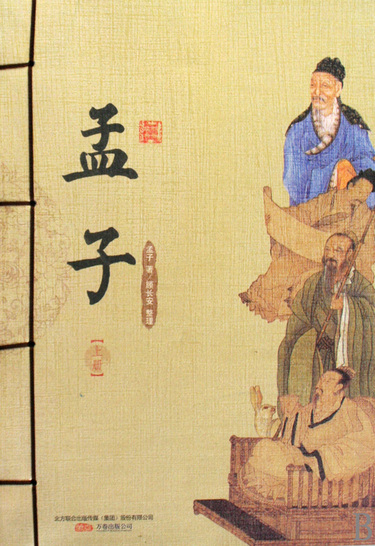 孟子
孟子 著 顾长安 整理
【上册】
北方联合出版传媒（集团）股份有限公司
万卷出版公司